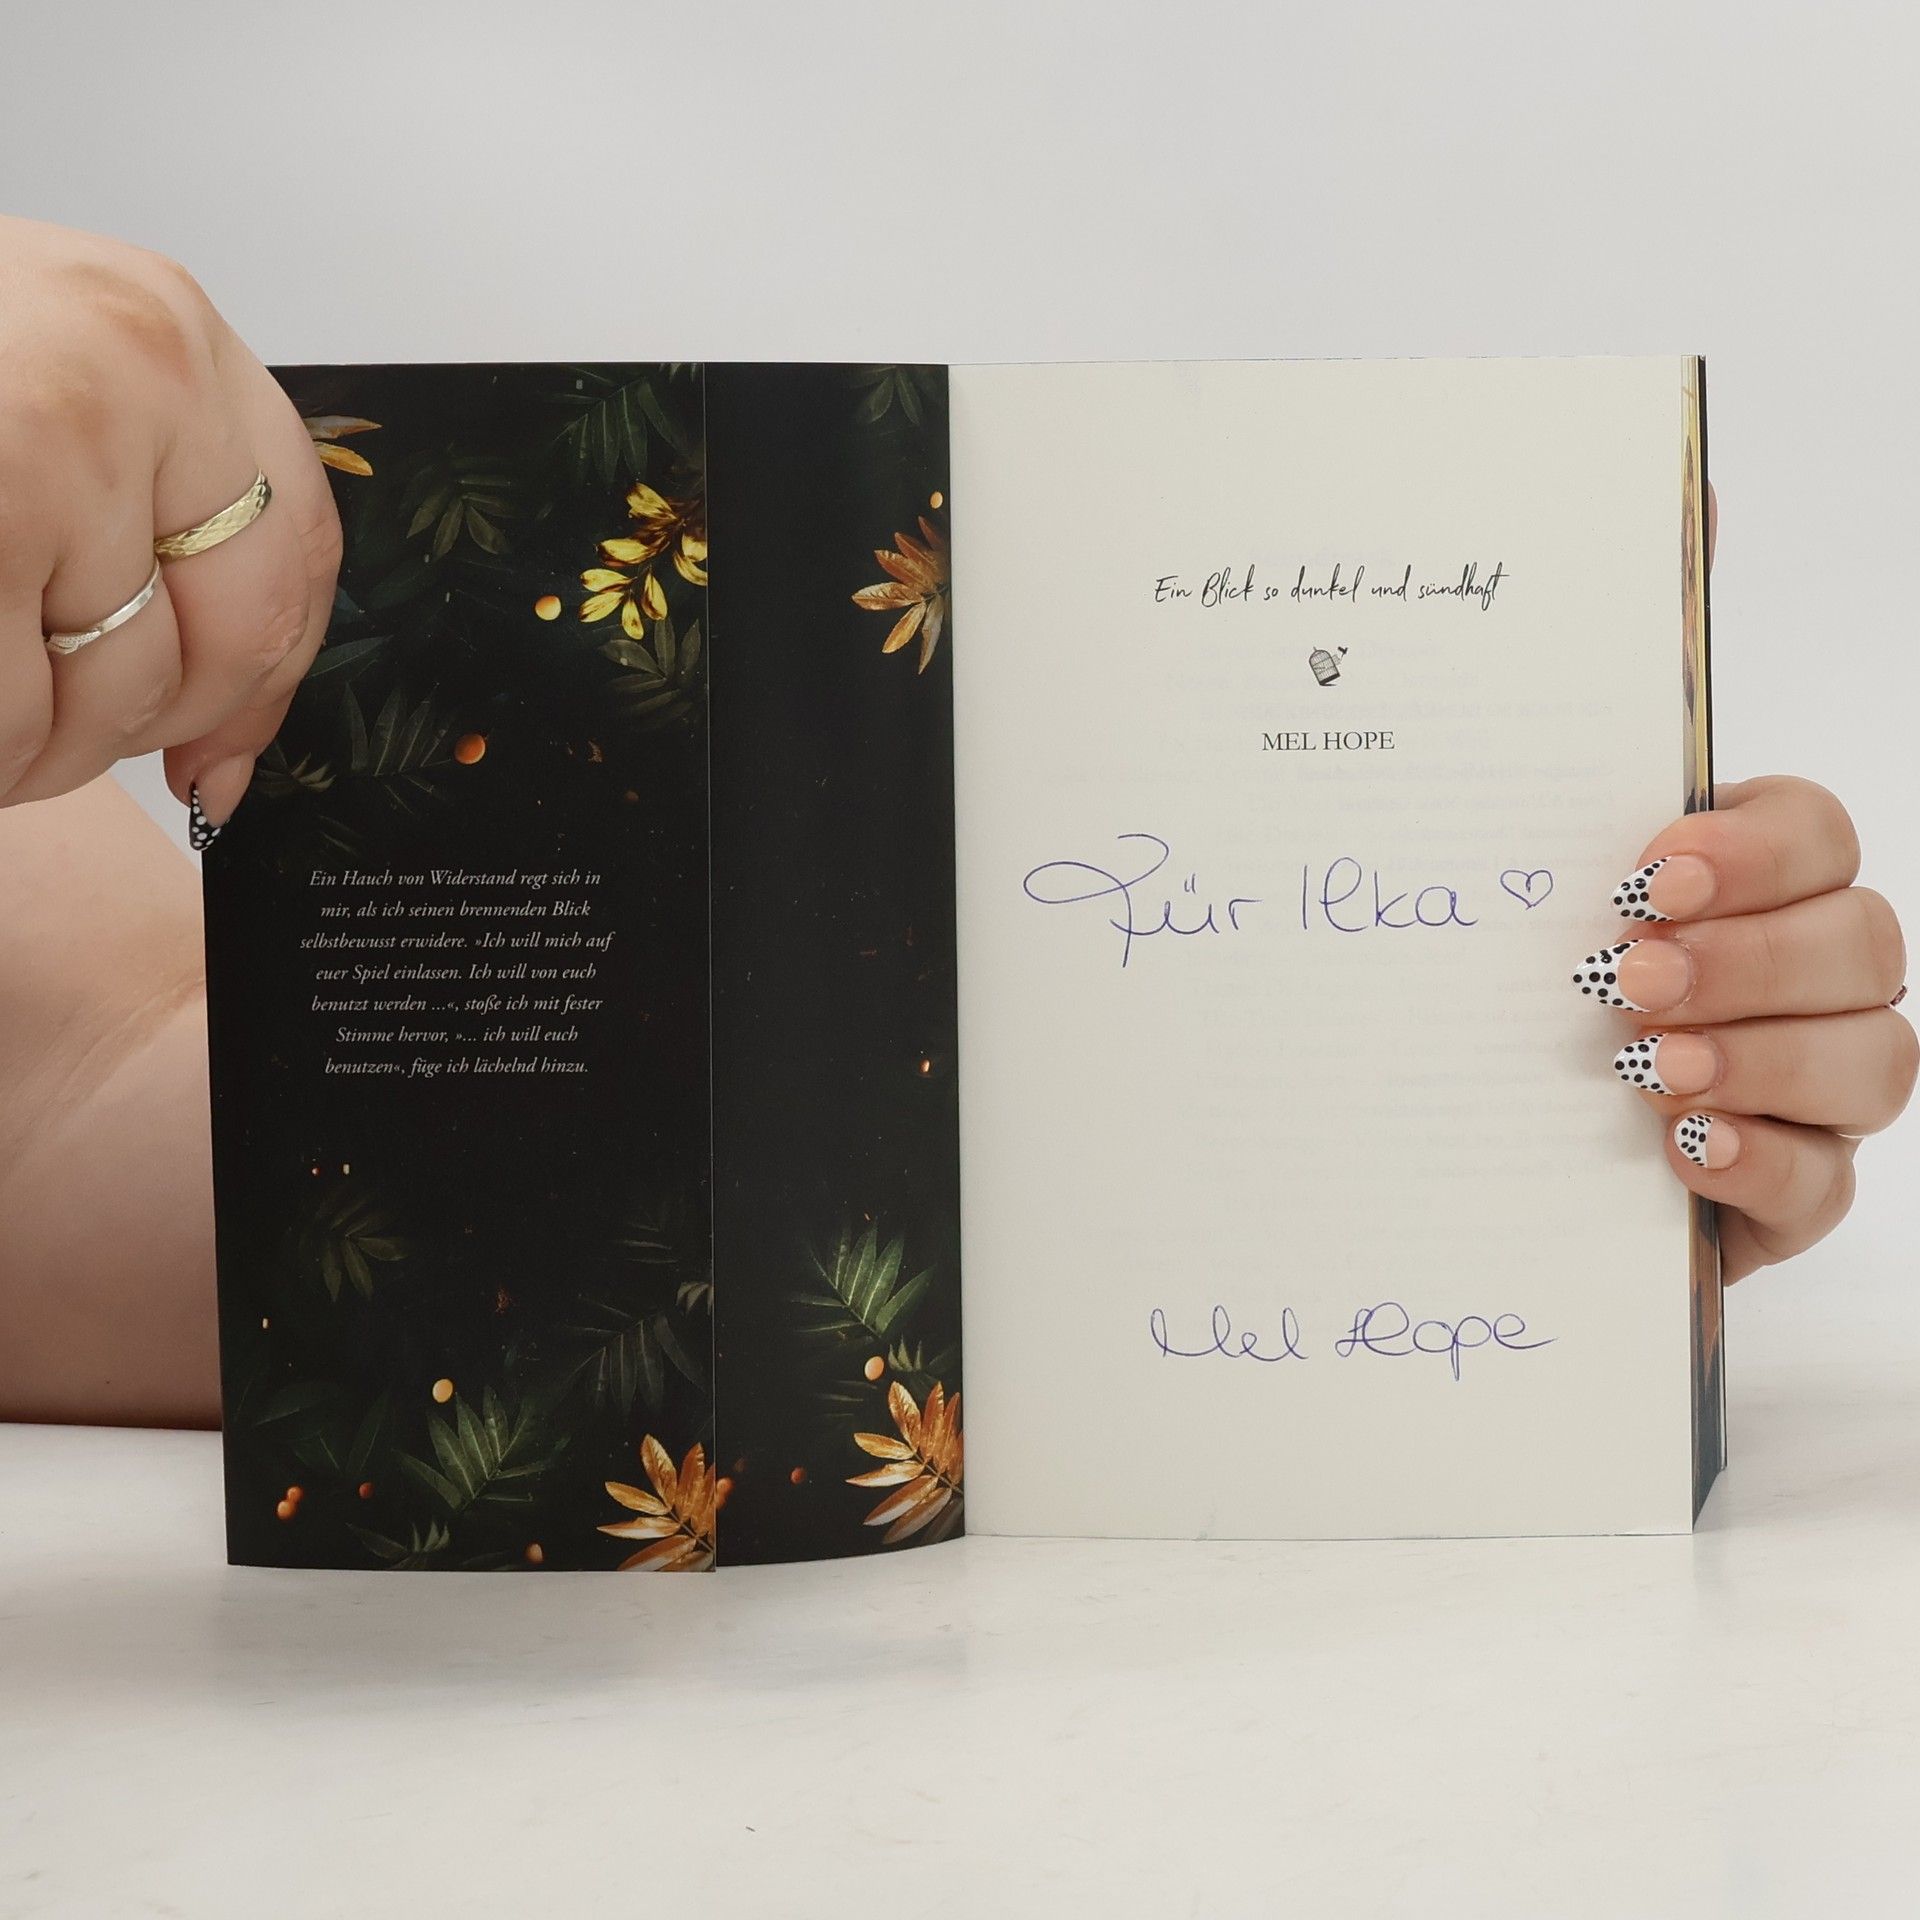 Ein Hauch von Widerstand regt sich in
mir, als ich seinen brennenden Blick
selbstbewusst erwidere. »Ich will mich auf
euer Spiel einlassen. Ich will von euch
benutzt werden ...«, stoße ich mit fester
Stimme hervor, »... ich will euch
benutzen«, füge ich lächelnd hinzu.
Ein Blick so dunkel und sündhaft
MEL HOPE
Für Ilka ♡
Mel Hope